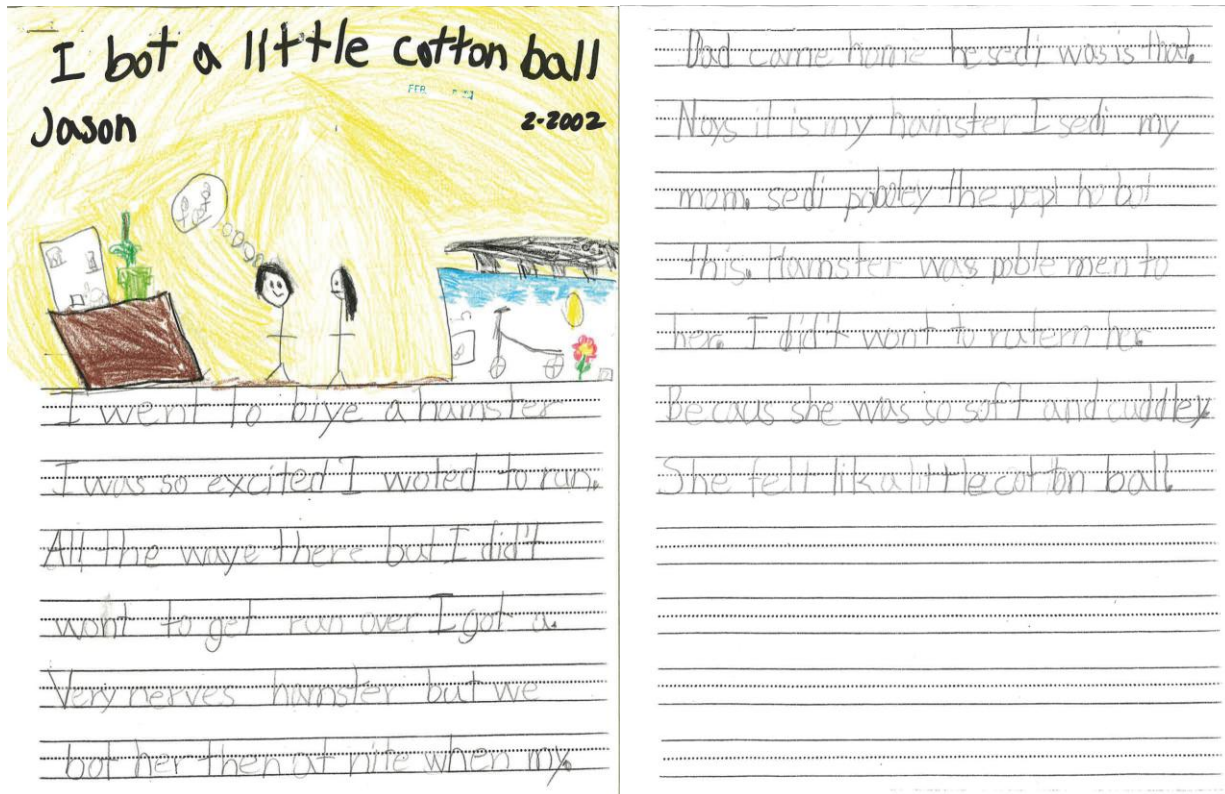 I bot a little cotton ball
FEB
Jason
2-2002
I went to biye a hamster
I was so excited I woted to run.
All the waye there but I did't
wont to get run over I got a.
Very nerves hamster but we
bot her then at nite when my.
Dad came home he sedi was is that.
Noys it is my hamster I sedi my
mom. sedi pobbley the pepl ho bot
this. Hamster was poble men to
her. I did't wont to ratern her.
Becaus she was so soft and cuddley.
She felt lik a little cotton ball.